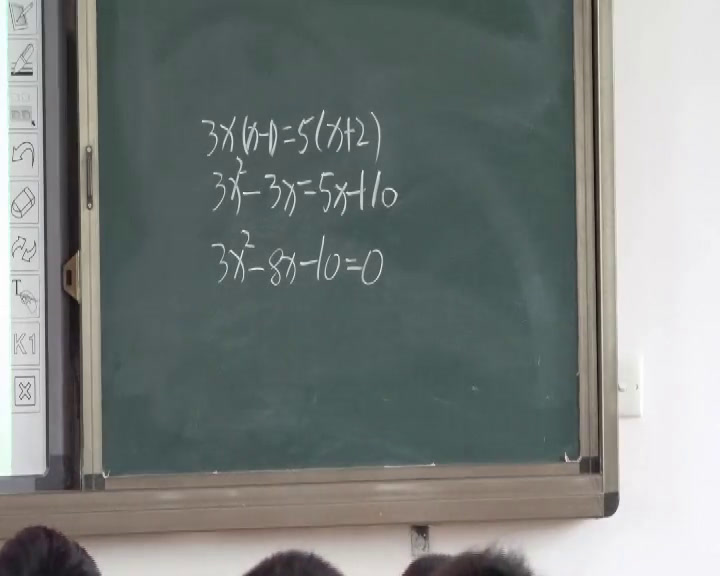 3x(x-1)=5(x+2)
3x²-3x=5x+10
3x²-8x-10=0
T
K1